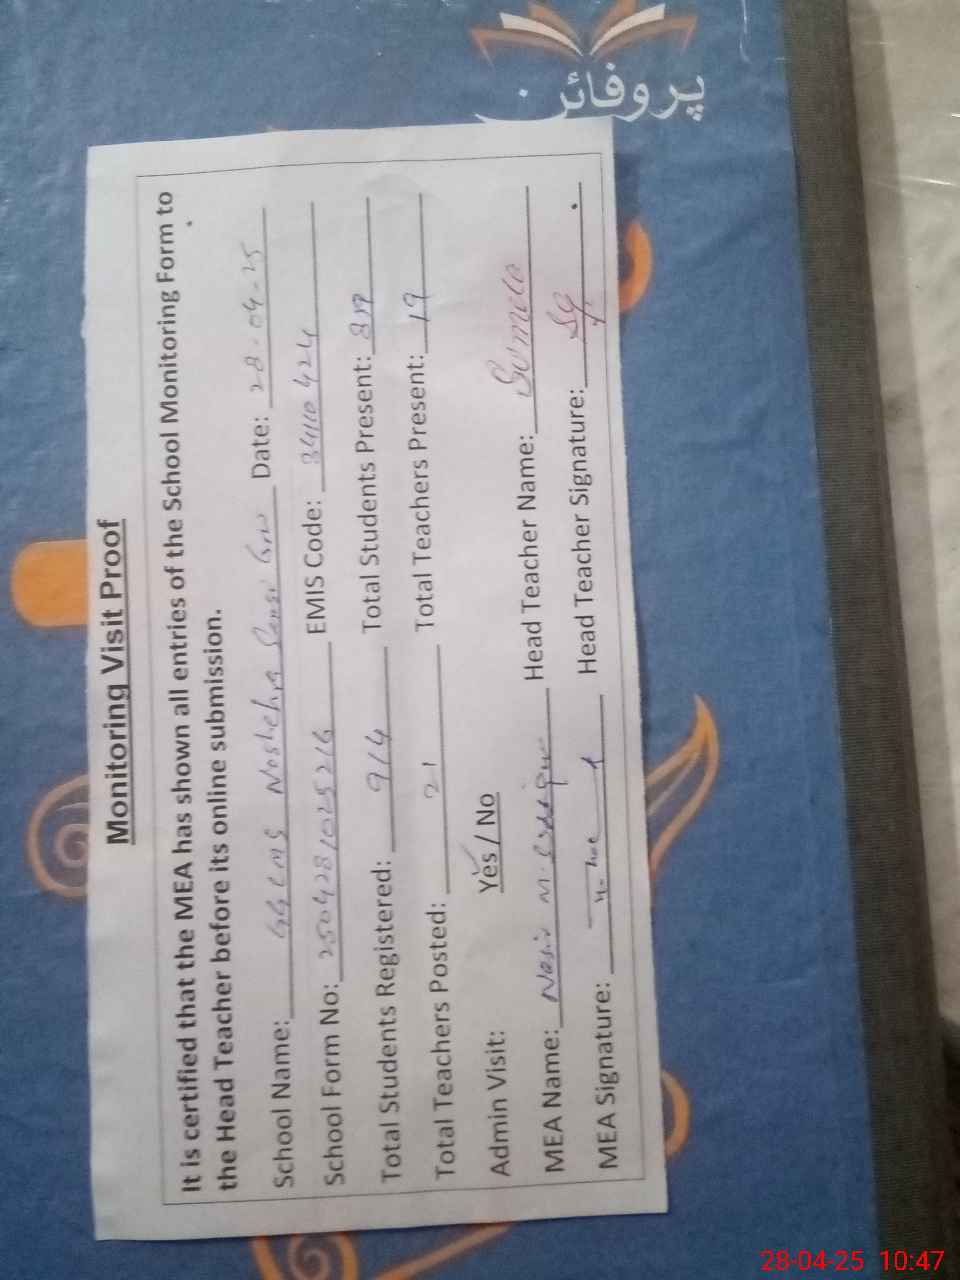 Monitoring Visit Proof
It is certified that the MEA has shown all entries of the School Monitoring Form to
the Head Teacher before its online submission.
School Name: Date: 28-04-25
School Form No: 2504281025216 EMIS Code: 34110424
Total Students Registered: 914 Total Students Present:
Total Teachers Posted: 21 Total Teachers Present: 19
Admin Visit: Yes / No
MEA Name: Nasir Head Teacher Name:
MEA Signature: Head Teacher Signature:
پروفائن
28-04-25 10:47